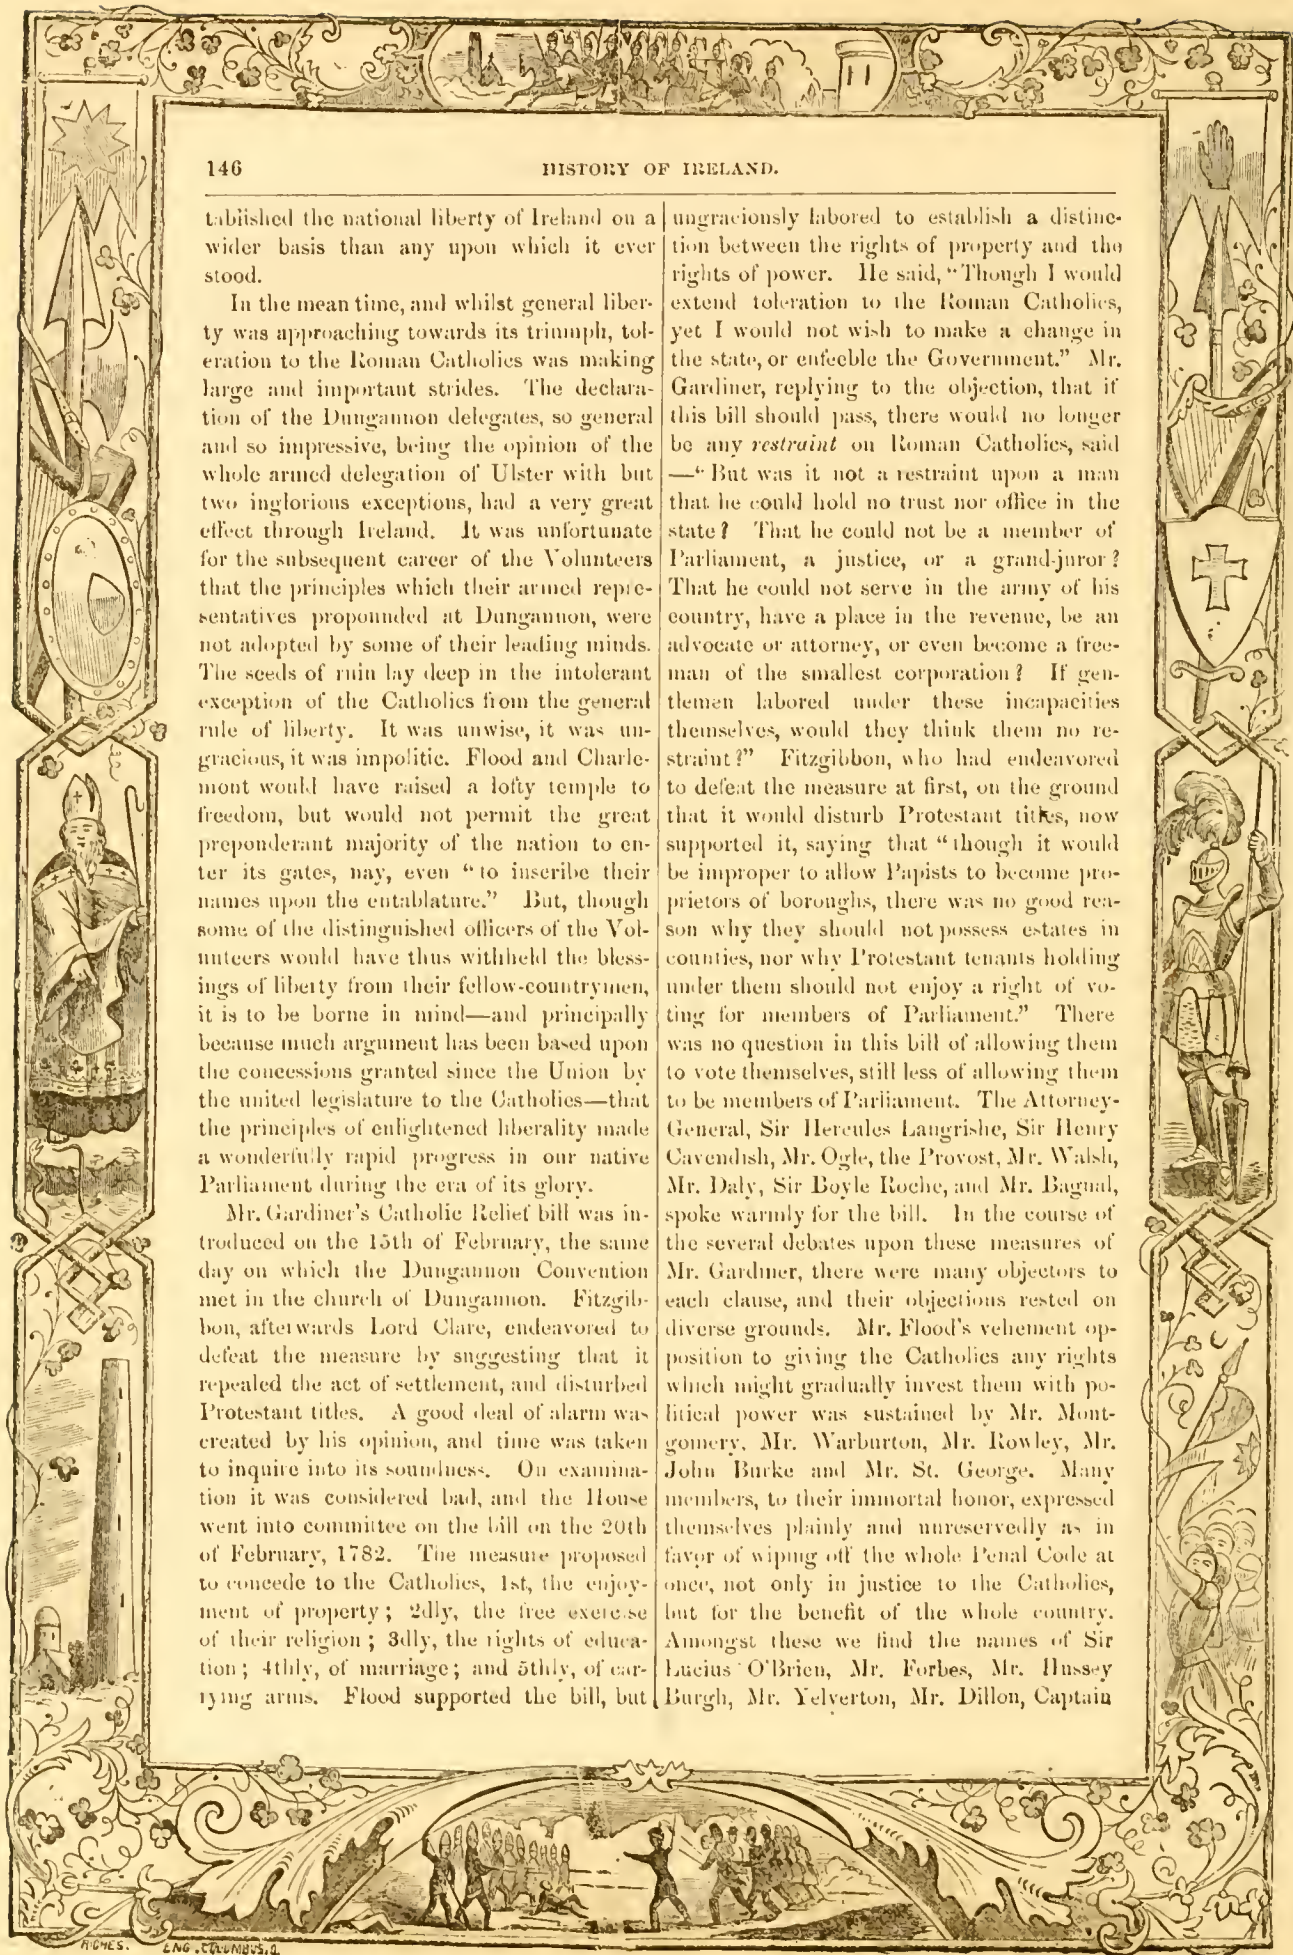 146
HISTORY OF IRELAND.
tablished the national liberty of Ireland on a
wider basis than any upon which it ever
stood.
In the mean time, and whilst general liber-
ty was approaching towards its triumph, tol-
eration to the Roman Catholics was making
large and important strides. The declara-
tion of the Dungannon delegates, so general
and so impressive, being the opinion of the
whole armed delegation of Ulster with but
two inglorious exceptions, had a very great
effect through Ireland. It was unfortunate
for the subsequent career of the Volunteers
that the principles which their armed repre-
sentatives propounded at Dungannon, were
not adopted by some of their leading minds.
The seeds of ruin lay deep in the intolerant
exception of the Catholics from the general
rule of liberty. It was unwise, it was un-
gracious, it was impolitic. Flood and Charle-
mont would have raised a lofty temple to
freedom, but would not permit the great
preponderant majority of the nation to en-
ter its gates, nay, even "to inscribe their
names upon the entablature." But, though
some of the distinguished officers of the Vol-
unteers would have thus withheld the bless-
ings of liberty from their fellow-countrymen,
it is to be borne in mind—and principally
because much argument has been based upon
the concessions granted since the Union by
the united legislature to the Catholics—that
the principles of enlightened liberality made
a wonderfully rapid progress in our native
Parliament during the era of its glory.
Mr. Gardiner's Catholic Relief bill was in-
troduced on the 15th of February, the same
day on which the Dungannon Convention
met in the church of Dungannon. Fitzgib-
bon, afterwards Lord Clare, endeavored to
defeat the measure by suggesting that it
repealed the act of settlement, and disturbed
Protestant titles. A good deal of alarm was
created by his opinion, and time was taken
to inquire into its soundness. On examina-
tion it was considered bad, and the House
went into committee on the bill on the 20th
of February, 1782. The measure proposed
to concede to the Catholics, 1st, the enjoy-
ment of property; 2dly, the free exercise
of their religion; 3dly, the rights of educa-
tion; 4thly, of marriage; and 5thly, of car-
rying arms. Flood supported the bill, but
ungraciously labored to establish a distinc-
tion between the rights of property and the
rights of power. He said, "Though I would
extend toleration to the Roman Catholics,
yet I would not wish to make a change in
the state, or enfeeble the Government." Mr.
Gardiner, replying to the objection, that if
this bill should pass, there would no longer
be any restraint on Roman Catholics, said
—"But was it not a restraint upon a man
that he could hold no trust nor office in the
state? That he could not be a member of
Parliament, a justice, or a grand-juror?
That he could not serve in the army of his
country, have a place in the revenue, be an
advocate or attorney, or even become a free-
man of the smallest corporation? If gen-
tlemen labored under these incapacities
themselves, would they think them no re-
straint?" Fitzgibbon, who had endeavored
to defeat the measure at first, on the ground
that it would disturb Protestant titles, now
supported it, saying that "though it would
be improper to allow Papists to become pro-
prietors of boroughs, there was no good rea-
son why they should not possess estates in
counties, nor why Protestant tenants holding
under them should not enjoy a right of vo-
ting for members of Parliament." There
was no question in this bill of allowing them
to vote themselves, still less of allowing them
to be members of Parliament. The Attorney-
General, Sir Hercules Langrishe, Sir Henry
Cavendish, Mr. Ogle, the Provost, Mr. Walsh,
Mr. Daly, Sir Boyle Roche, and Mr. Bagnal,
spoke warmly for the bill. In the course of
the several debates upon these measures of
Mr. Gardiner, there were many objectors to
each clause, and their objections rested on
diverse grounds. Mr. Flood's vehement op-
position to giving the Catholics any rights
which might gradually invest them with po-
litical power was sustained by Mr. Mont-
gomery, Mr. Warburton, Mr. Rowley, Mr.
John Burke and Mr. St. George. Many
members, to their immortal honor, expressed
themselves plainly and unreservedly as in
favor of wiping off the whole Penal Code at
once, not only in justice to the Catholics,
but for the benefit of the whole country.
Amongst these we find the names of Sir
Lucius O'Brien, Mr. Forbes, Mr. Hussey
Burgh, Mr. Yelverton, Mr. Dillon, Captain
RICHES. ENG. COLUMBUS, O.